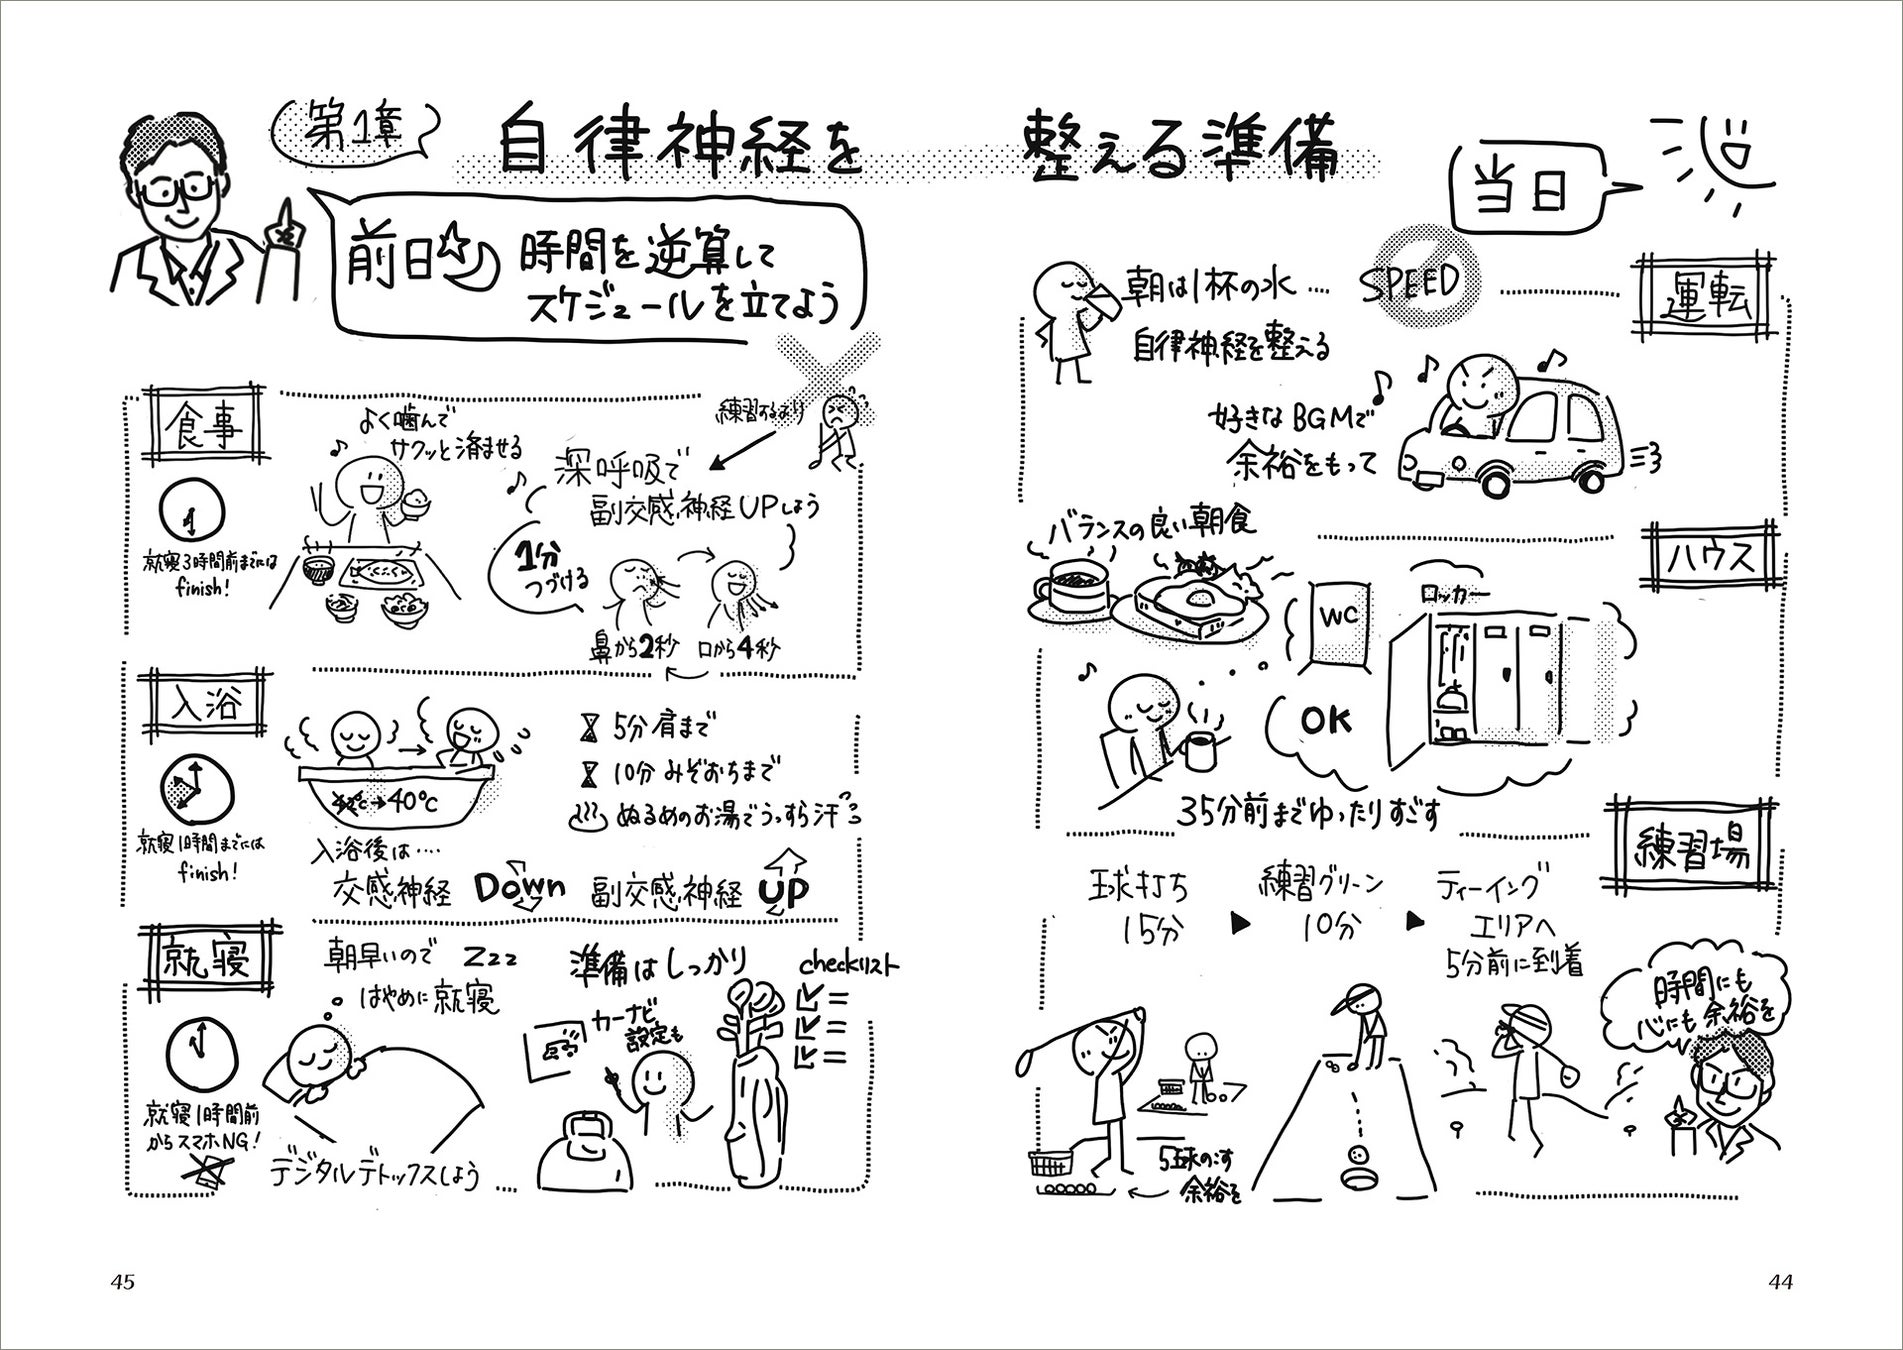 第1章
自律神経を整える準備
前日 時間を逆算して
スケジュールを立てよう
食事
就寝3時間前までには
finish!
よく噛んで
サクッと済ませる
練習するより
深呼吸で
副交感神経UPしよう
1分
つづける
鼻から2秒
口から4秒
入浴
就寝1時間までには
finish!
42℃→40℃
5分 肩まで
10分 みぞおちまで
ぬるめのお湯でうっすら汗
入浴後は‥‥
交感神経 Down 副交感神経 UP
就寝
就寝1時間前
からスマホNG!
朝早いので
はやめに就寝
Zzz
デジタルデトックスしよう
準備はしっかり
カーナビ
設定も
checkリスト
45
当日
朝は1杯の水‥‥
自律神経を整える
運転
SPEED
好きなBGMで
余裕をもって
ハウス
バランスの良い朝食
WC
ロッカー
OK
35分前までゆったりすごす
練習場
球打ち
15分
練習グリーン
10分
ティーイング
エリアへ
5分前に到着
5球のこす
余裕を
時間にも
心にも余裕を
44